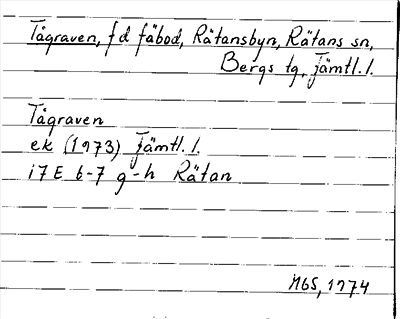 Tågraven, fd fäbod, Rätansbyn, Rätans sn,
Bergs tg, Jämtl. l.
Tågraven
ek (1973) Jämtl. l.
17E 6-7 g-h Rätan
NbS, 1974